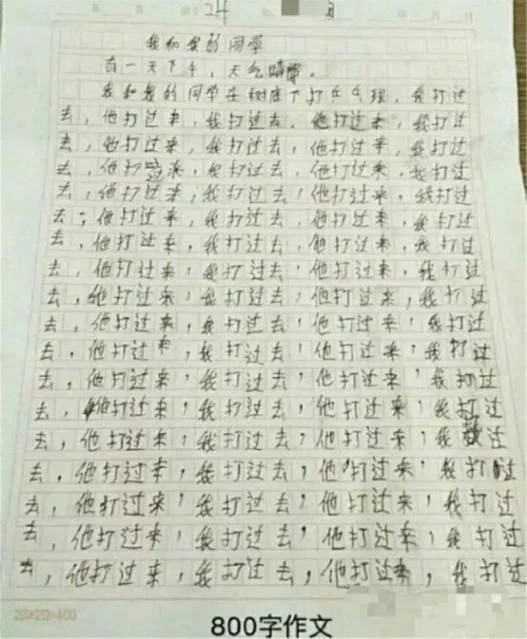 24 月
我和我的同学
有一天下午，天气晴。
我和我的同学在树底下打乒乓球，我打过
去，他打过来，我打过去，他打过来，我打过
去，他打过来，我打过去，他打过来，我打过
去，他打过来，我打过去，他打过来，我打过
去，他打过来，我打过去，他打过来，我打过
去，他打过来，我打过去，他打过来，我打过
去，他打过来，我打过去，他打过来，我打过
去，他打过来，我打过去，他打过来，我打过
去，他打过来，我打过去，他打过来，我打过
去，他打过来，我打过去，他打过来，我打过
去，他打过来，我打过去，他打过来，我打过
去，他打过来，我打过去，他打过来，我打过
去，他打过来，我打过去，他打过来，我打过
去，他打过来，我打过去，他打过来，我过
去，他打过来，我打过去，他打过来，我打过
去，他打过来，我打过去，他打过来，我打过
去，他打过来，我打过去，他打过来，我打过
去，他打过来，我打过去，他打过来，我打过
20×20=400
800字作文